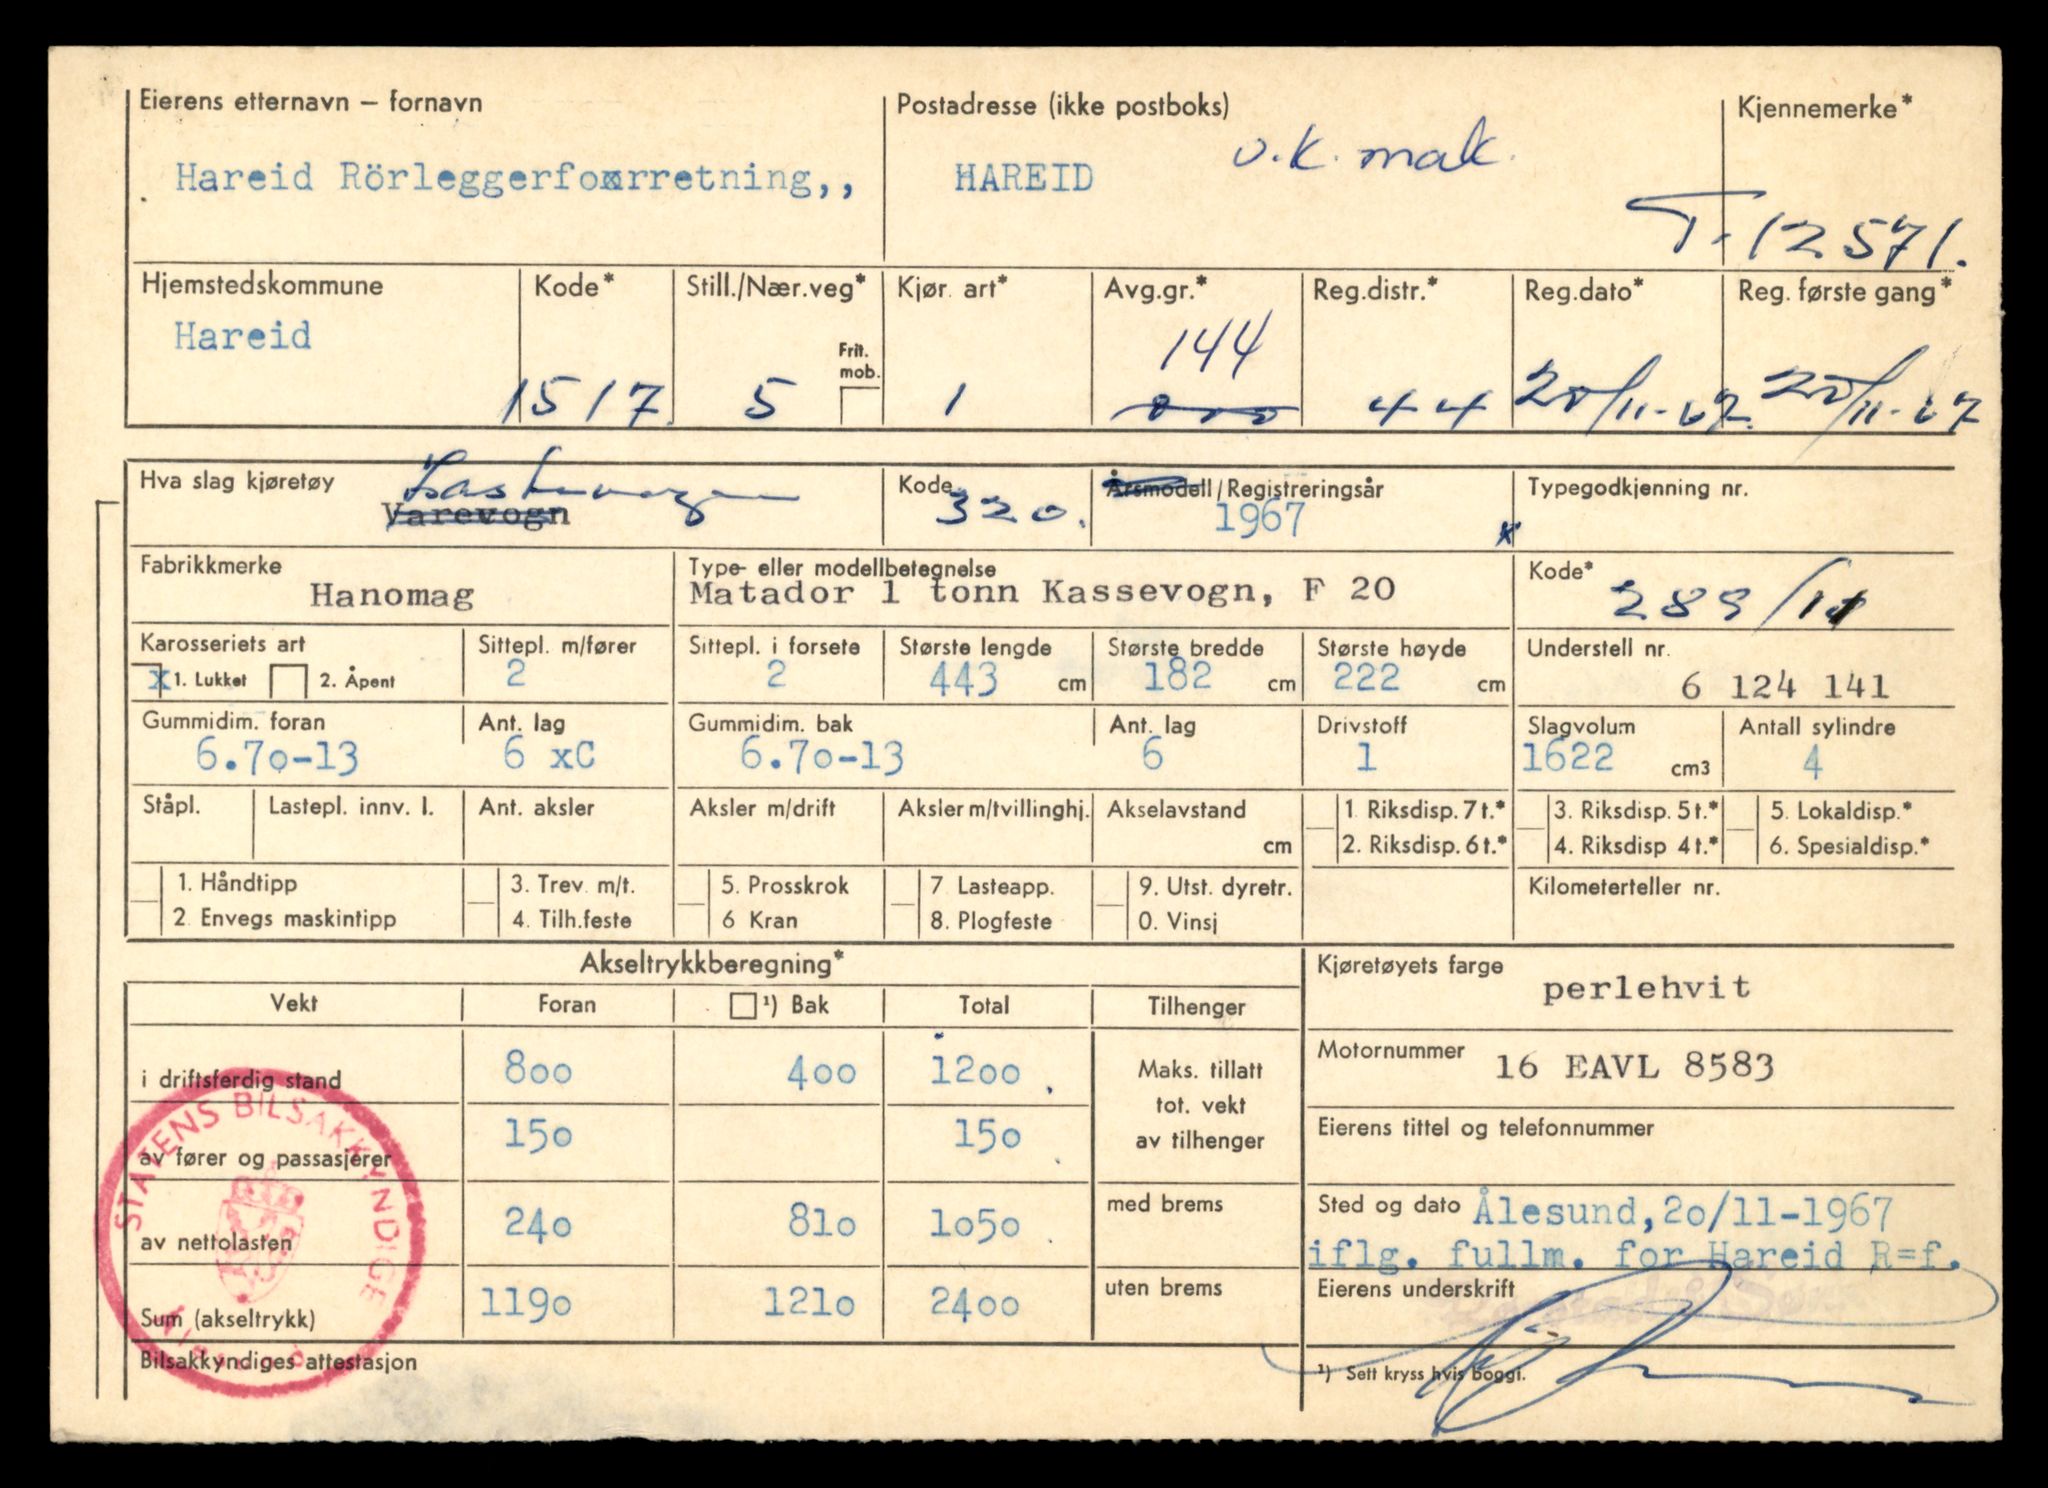 Eierens etternavn – fornavn Postadresse (ikke postboks) Kjennemerke*
v.k. mak.
Hareid Rörleggerfoxrretning,, HAREID
T-12571.
Hjemstedskommune Kode* Still./Nær.veg* Kjør. art* Avg.gr.* Reg.distr.* Reg.dato* Reg. første gang*
Hareid Frit. mob. 144
1517 5 1 000 44 20/11-67. 20/11-67
Hva slag kjøretøy Lastevogn Kode 320. Årsmodell/Registreringsår Typegodkjenning nr.
Varevogn 1967 x
Fabrikkmerke Type- eller modellbetegnelse Kode*
Hanomag Matador 1 tonn Kassevogn, F 20 289/11
Karosseriets art Sittepl. m/fører Sittepl. i forsete Største lengde Største bredde Største høyde Understell nr.
x 1. Lukket 2. Åpent 2 2 443 cm 182 cm 222 cm 6 124 141
Gummidim. foran Ant. lag Gummidim. bak Ant. lag Drivstoff Slagvolum Antall sylindre
6.70-13 6 xC 6.70-13 6 1 1622 cm3 4
Ståpl. Lastepl. innv. l. Ant. aksler Aksler m/drift Aksler m/tvillinghj. Akselavstand 1 Riksdisp. 7 t.* 3. Riksdisp. 5 t.* 5. Lokaldisp.*
cm 2. Riksdisp. 6 t.* 4. Riksdisp 4 t.* 6. Spesialdisp.*
1. Håndtipp 3. Trev. m/t. 5. Prosskrok 7 Lasteapp. 9. Utst. dyretr. Kilometerteller nr.
2 Envegs maskintipp 4. Tilh.feste 6 Kran 8. Plogfeste 0. Vinsj
Akseltrykkberegning* Kjøretøyets farge
perlehvit
Vekt Foran ¹) Bak Total Tilhenger
i driftsferdig stand 800 400 1200 Maks. tillatt Motornummer 16 EAVL 8583
tot. vekt
av fører og passasjerer 150 150 av tilhenger Eierens tittel og telefonnummer
av nettolasten 240 810 1050 med brems Sted og dato Ålesund, 20/11-1967
iflg. fullm. for Hareid R=f.
Sum (akseltrykk) 1190 1210 2400 uten brems Eierens underskrift
Bilsakkyndiges attestasjon ¹) Sett kryss hvis boggi.
STATENS BILSAKKYNDIGE